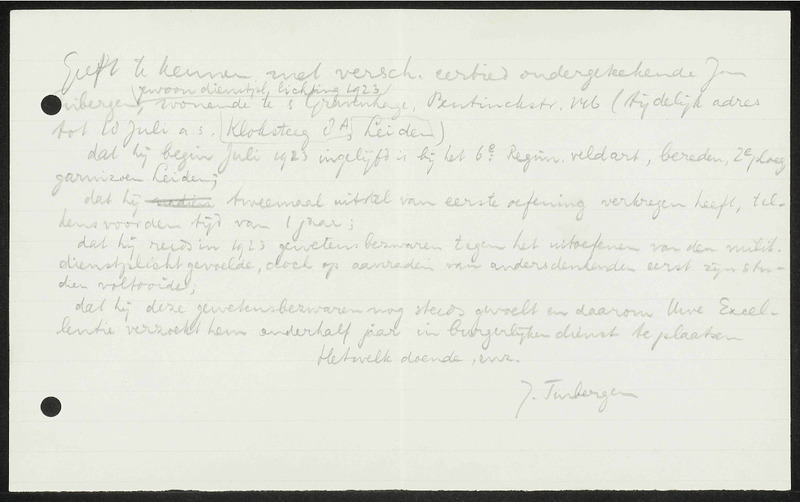 Geeft te kennen met versch. eerbied ondergetekende Jan
gewoon dienstpl. lichting 1923
inbergen, wonende te 's Gravenhage, Bentinckstr. 146 (tijdelijk adres
tot 20 Juli a.s. Kloksteeg 8A, Leiden)
dat hij begin Juli 1923 ingelijfd is bij het 6e Regim. veldart., bereden, 2e ploeg
garnizoen Leiden;
dat hij tweemaal uitstel van eerste oefening verkregen heeft, tel-
kens voor den tijd van 1 jaar;
dat hij reeds in 1923 gewetensbezwaren tegen het uitoefenen van den milit.
dienstplicht gevoelde, doch op aanraden van andersdenkenden eerst zijn stu-
dien voltooide;
dat hij deze gewetensbezwaren nog steeds gevoelt en daarom Uwe Excel-
lentie verzoekt hem anderhalf jaar in burgerlijken dienst te plaatsen
Hetwelk doende, enz.
J. Tinbergen